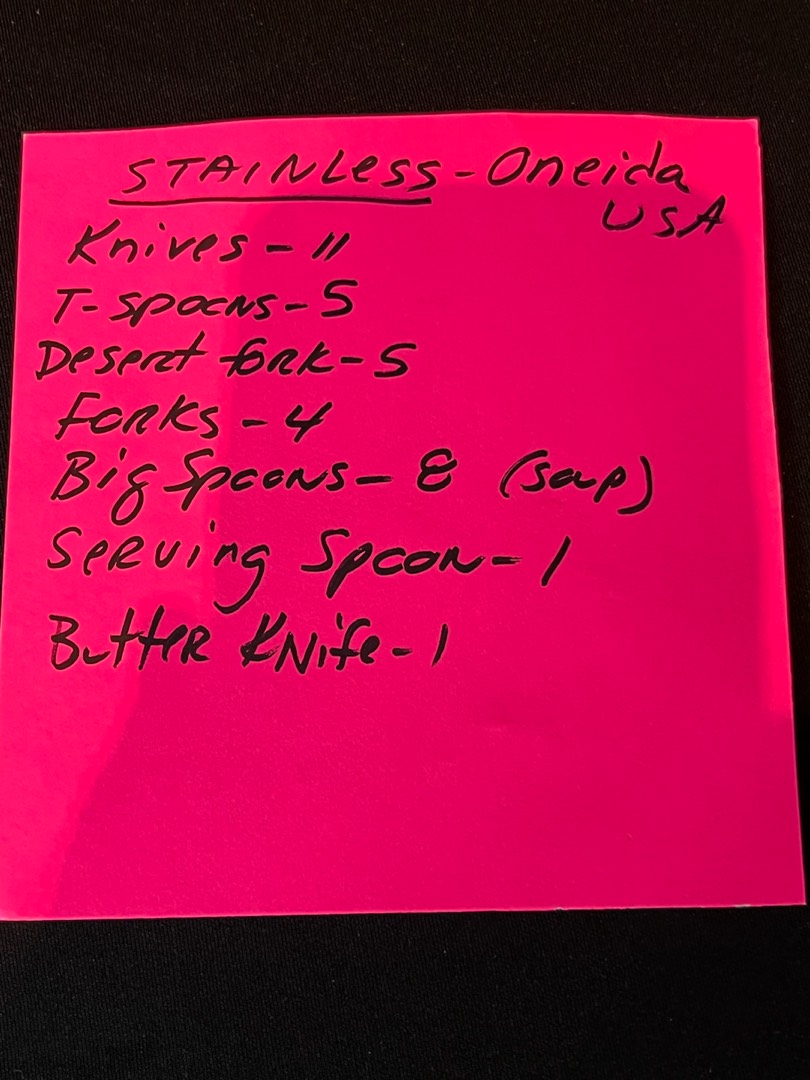 STAINLess - Oneida
USA
Knives - 11
T-spoons - 5
Desert fork - 5
Forks - 4
Big Spoons - 8 (soup)
Serving Spoon - 1
Butter Knife - 1